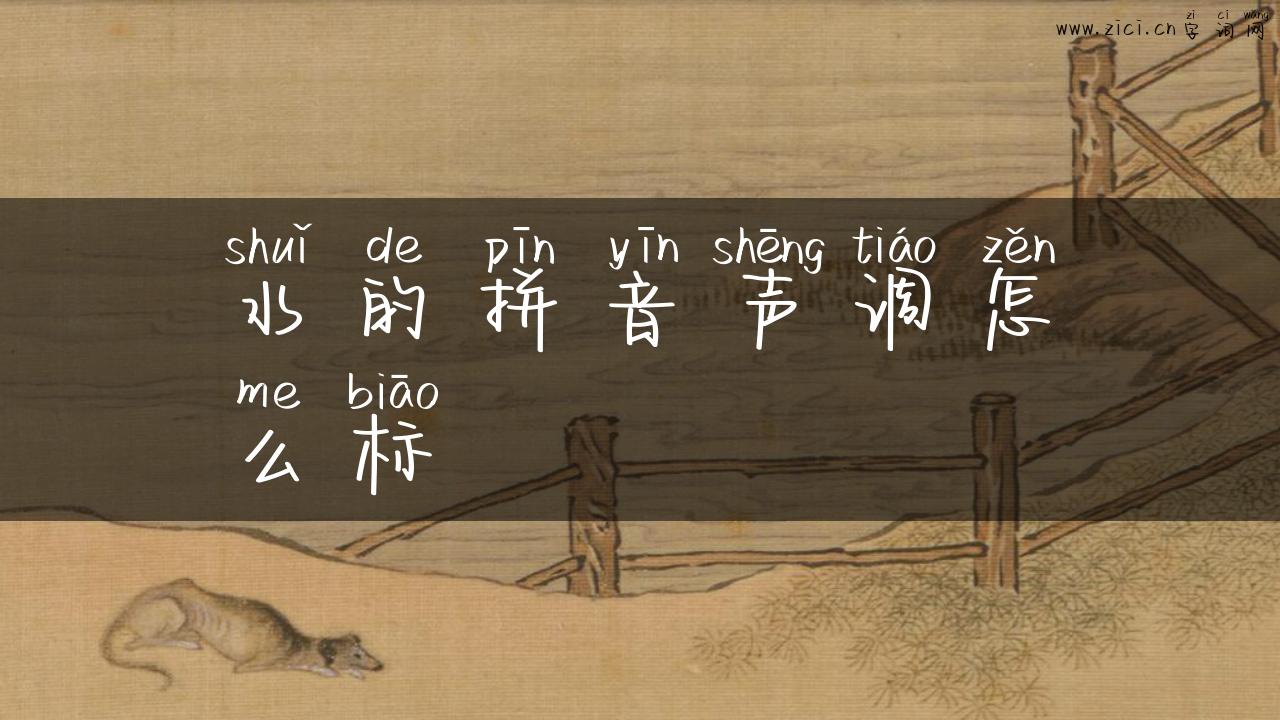 zi ci wang
www.zici.cn 字词网
shuǐ de pīn yīn shēng tiáo zěn
水的拼音声调怎
me biāo
么标